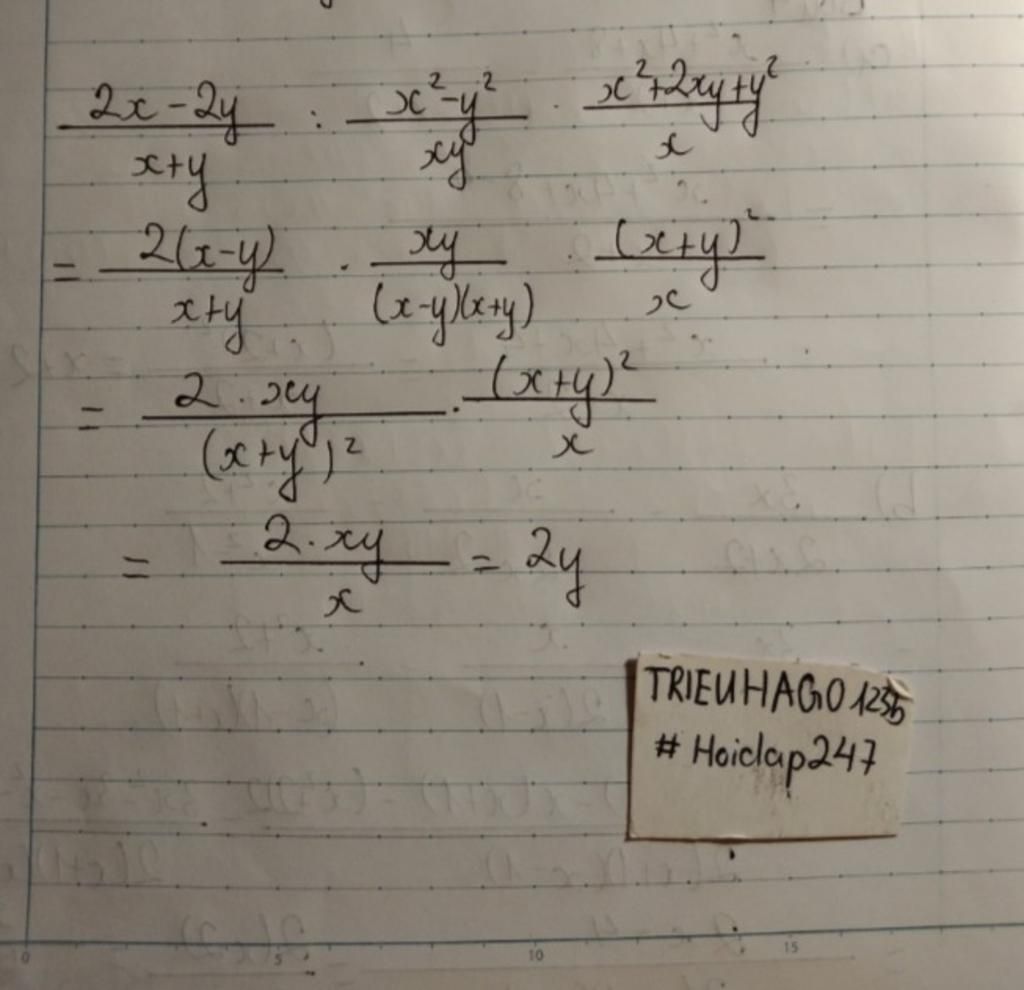 (2x-2y)/(x+y) : (x²-y²)/(xy) · (x²+2xy+y²)/x
= 2(x-y)/(x+y) · xy/((x-y)(x+y)) · (x+y)²/x
= 2·xy/(x+y)² · (x+y)²/x
= 2·xy/x = 2y
TRIEUHAGO1235
# Hoidap247
0 5 10 15